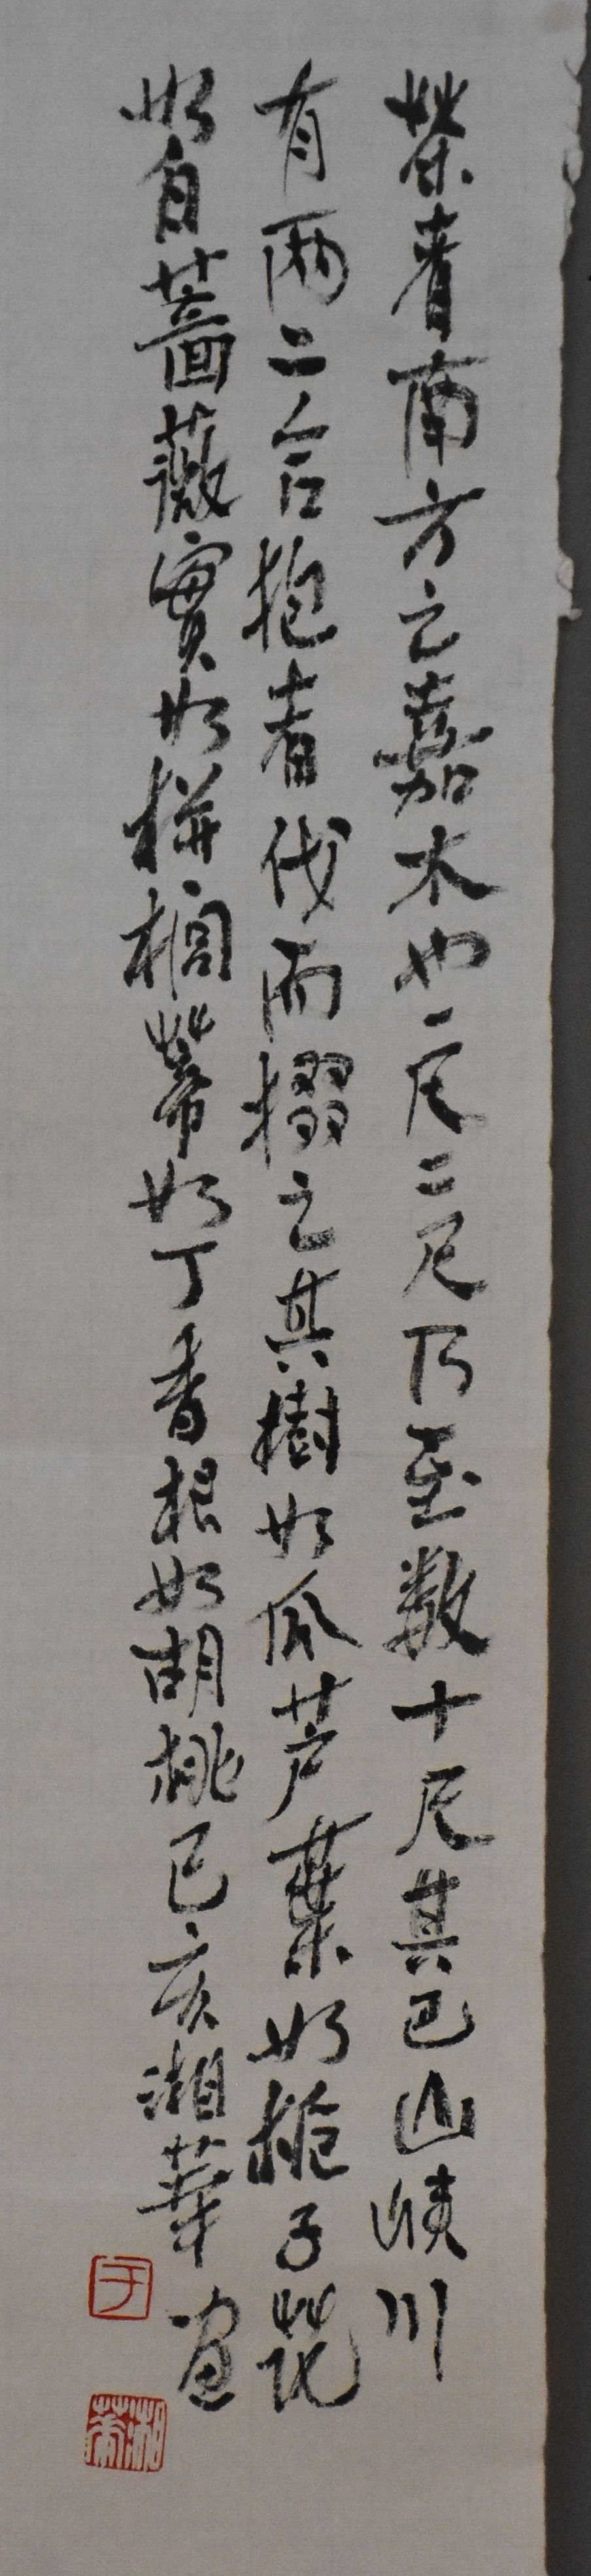 茶者南方之嘉木也一尺二尺乃至数十尺其巴山峽川
有两二合抱者伐而掇之其樹如瓜芦葉如栀子花
如白薔薇實如栟榈蒂如丁香根如胡桃己亥湘華画
于
湘華